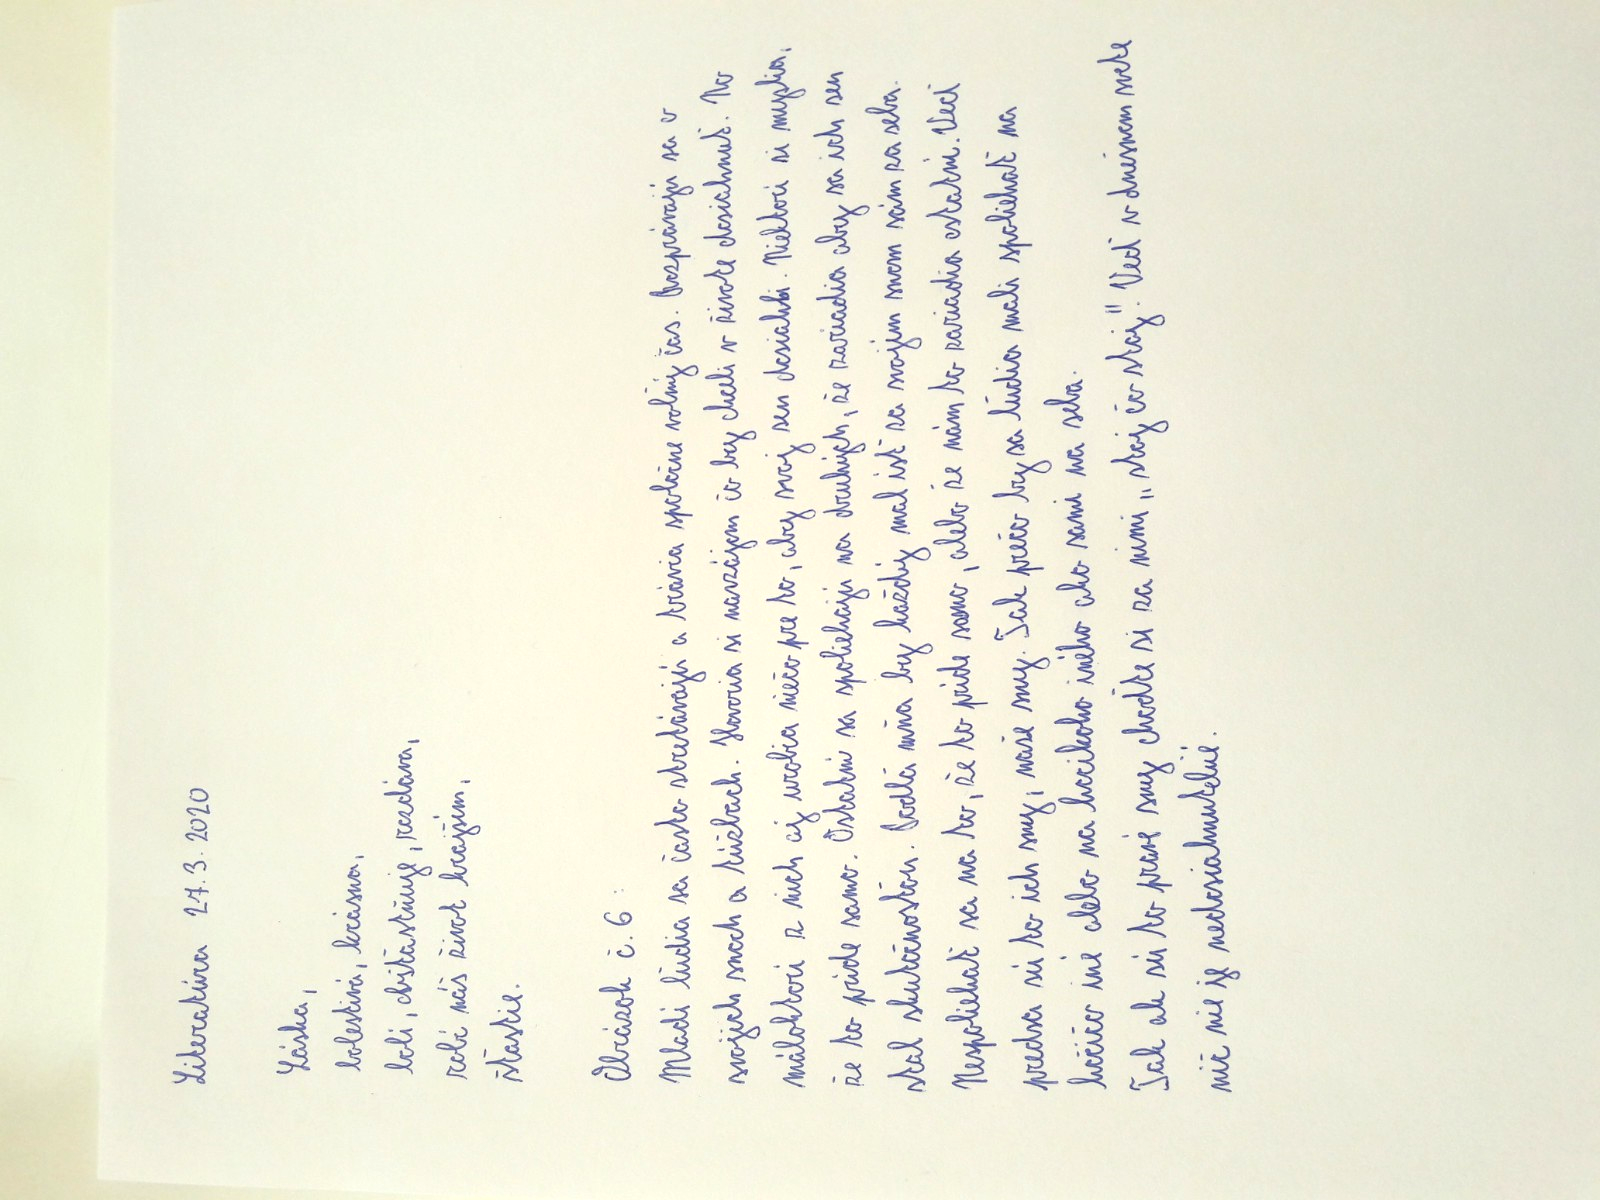 Literatúra 27.3.2020
Láska,
bolestivá, krásna,
bolí, chstastňuje, rozdáva,
robí náš život krajším,
štastie.
Obrázok č. 6:
Mladí ľudia sa často stretávajú a trávia spoločne voľný čas. Rozprávajú sa o
svojich snoch a túžbach. Hovoria si navzájom čo by chceli v živote dosiahnuť. No
máloktorí z nich aj urobia niečo pre to, aby svoj sen dosiahli. Niektorí si myslia,
že to príde samo. Ostatní sa spoliehajú na druhých, že zariadia aby sa ich sen
stal skutočnosťou. Podľa mňa by každý mal ísť za svojím snom sám za seba.
Nespoliehať sa na to, že to príde samo, alebo že nám to zariadia ostatní. Veď
predsa sú to ich sny, naše sny. Tak prečo by sa ľudia mali spoliehať na
kočičo iné alebo na kocikoho iného ako sami na seba.
Tak ak sú to pravé sny choďte si za nimi „stoj čo stoj". Veď v dnešnom svete
nič nie je nedosiahnuteľné.